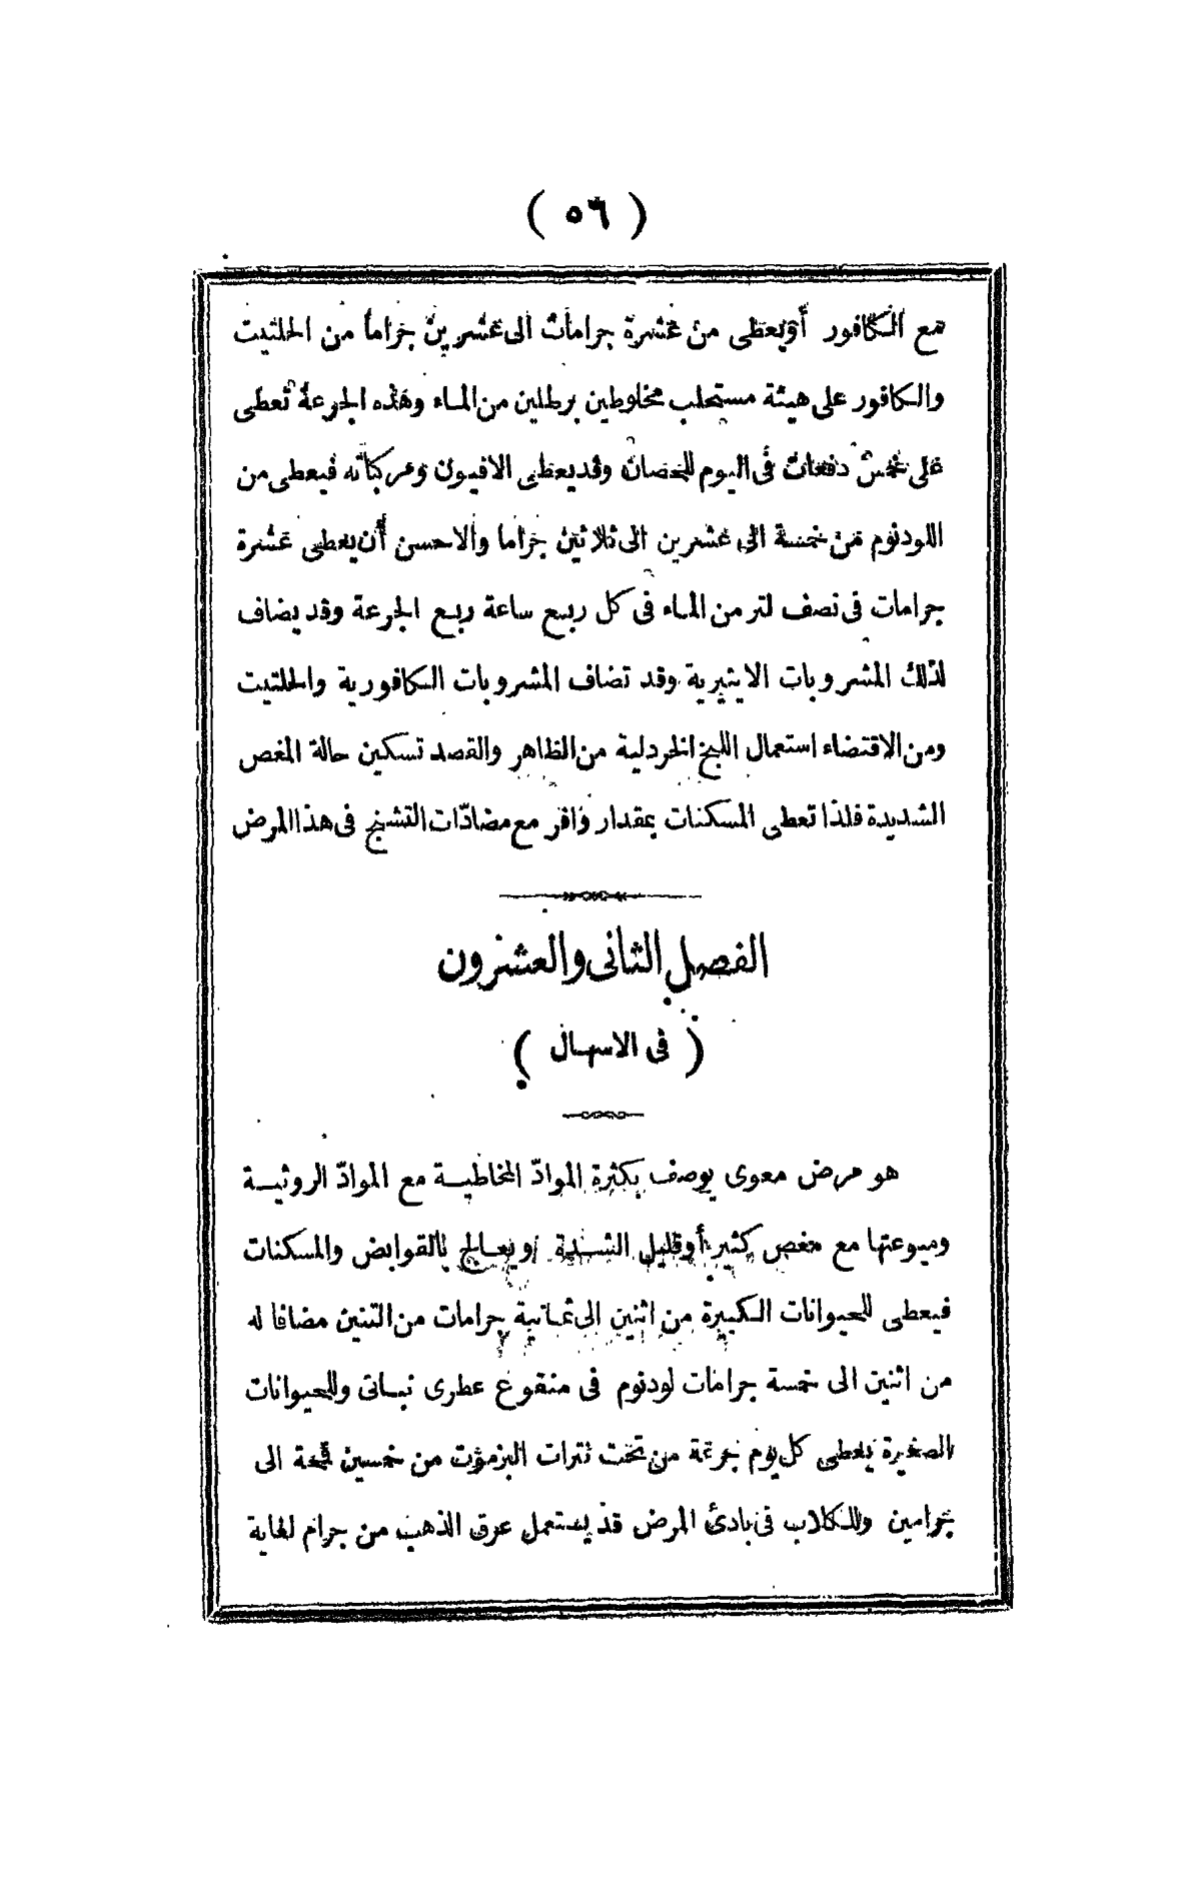 ( ٥٦ )
مع الكافور أو يعطى من عشرة جرامات الى عشرين جراما من الحلتيت
والكافور على هيئة مستحلب مخلوطين برطلين من الماء وهذه الجرعة تعطى
على خمس دفعات فى اليوم للحصان وقد يعطى الافيون ومركباته فيعطى من
اللودنوم من خمسة الى عشرين الى ثلاثين جراما والاحسن أن يعطى عشرة
جرامات فى نصف لتر من الماء فى كل ربع ساعة ربع الجرعة وقد يضاف
لذلك المشروبات الايتيرية وقد تضاف المشروبات الكافورية والحلتيت
ومن الاقتضاء استعمال اللبخ الخردلية من الظاهر والقصد تسكين حالة المغص
الشديدة فلذا تعطى المسكنات بمقدار وافر مع مضادّات التشنج فى هذا المرض
الفصل الثانى والعشرون
( فى الاسهال )
هو مرض معوى يوصف بكثرة الموادّ المخاطية مع الموادّ الروثية
وميوعتها مع مغص كثير أو قليل الشدة ويعالج بالقوابض والمسكنات
فيعطى للحيوانات الكبيرة من اثنين الى ثمانية جرامات من التنين مضافا له
من اثنين الى خمسة جرامات لودنوم فى منقوع عطرى نباتى وللحيوانات
الصغيرة يعطى كل يوم جرعة من تحت نترات البزموت من خمسين قمحة الى
جرامين وللكلاب فى بادئ المرض قد يستعمل عرق الذهب من جرام لغاية